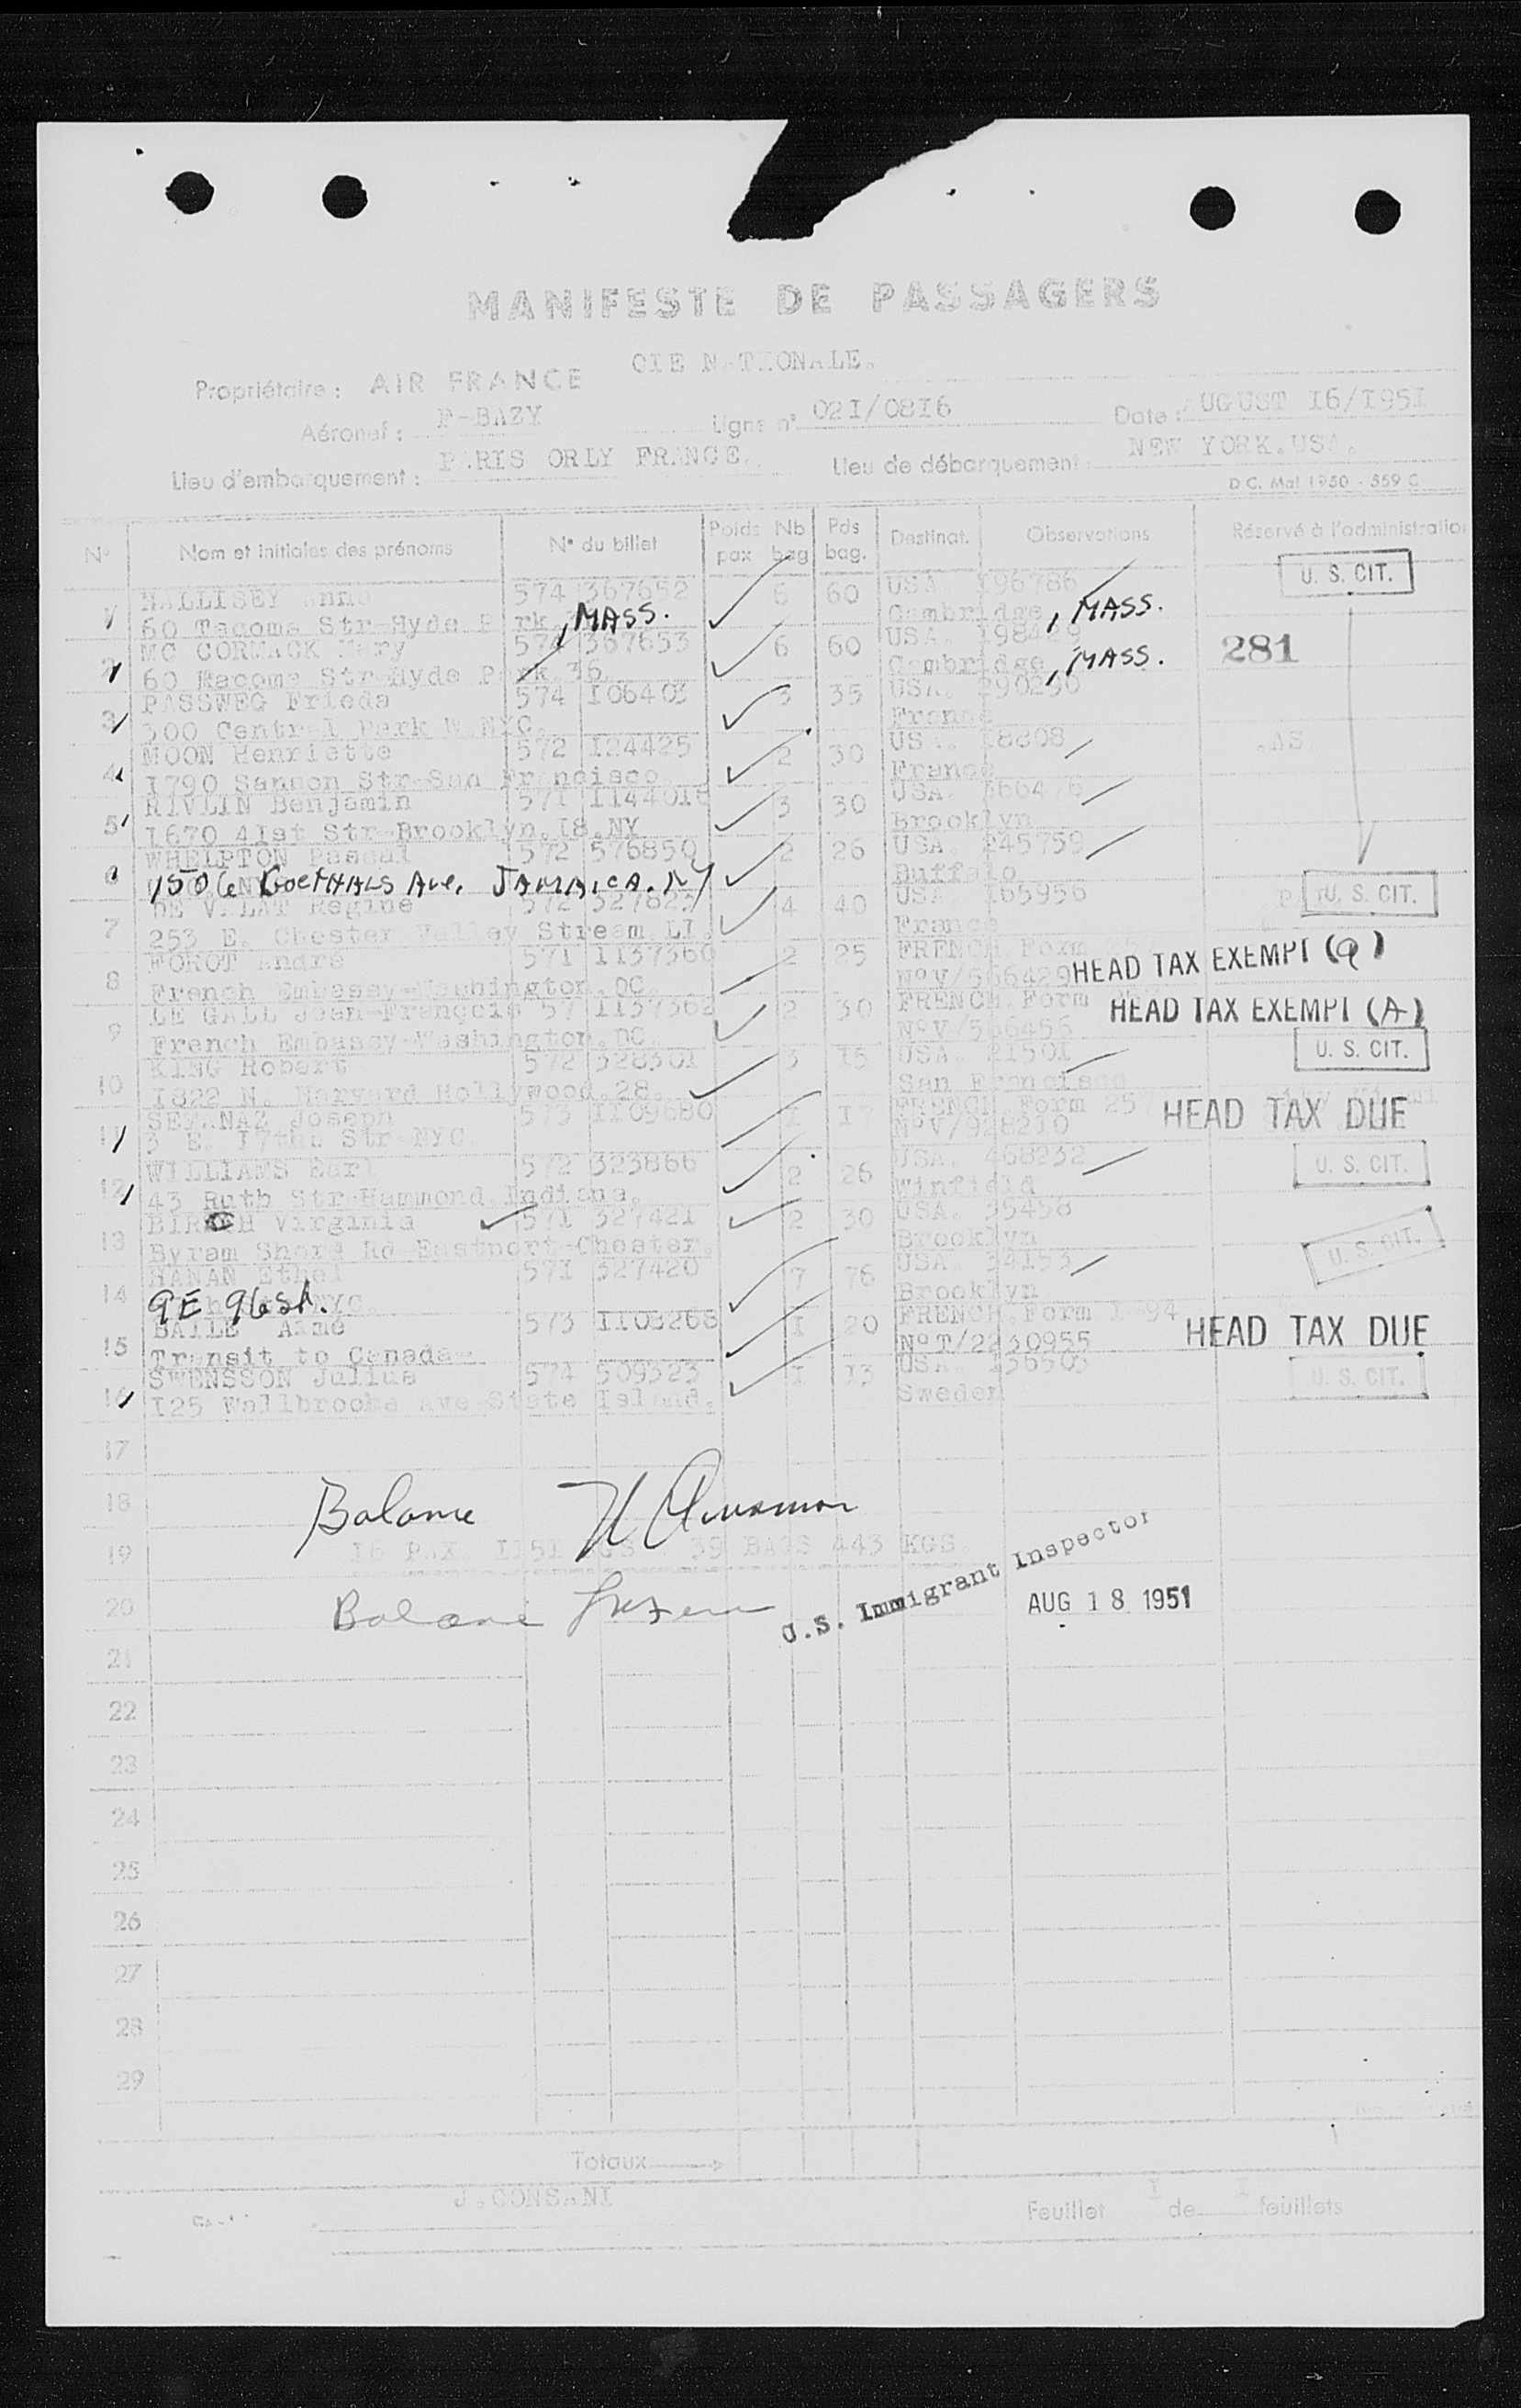 MANIFESTE DE PASSAGERS
CIE NATIONALE.
Propriétaire : AIR FRANCE
Aéronef : F-BAZY Ligne n° 021/0816 Date : AUGUST 16/1951
Lieu d'embarquement : PARIS ORLY FRANCE. Lieu de débarquement : NEW YORK.USA.
D.C. Mat 1950 - 559 C
N° Nom et initiales des prénoms N° du billet Poids pax Nb bag Pds bag. Destinat. Observations Réservé à l'administration
U. S. CIT.
1 HALLISEY Anna 574 367652 6 60 USA. 196786
60 Tacoma Str-Hyde Park , MASS. Cambridge , MASS.
2 MC CORMACK Mary 574 367653 6 60 USA. 281
60 Macoma Str-Hyde Park 36. Cambridge , MASS.
3 PASSWEG Frieda 574 106403 3 35 USA. 290290
300 Central Park W.NYC. France
4 MOON Henriette 572 124425 2 30 USA. 18808
1790 Sanson Str-San Francisco. France
5 RIVLIN Benjamin 571 3 30 USA.
1670 41st Str-Brooklyn.18.NY Brooklyn
6 WHELPTON Pascal 572 576850 2 26 USA. 245759
1506 GOETHALS AVE. JAMAICA. NY Buffalo
7 DE VILAT Regine 572 4 40 USA. 165956 U. S. CIT.
253 E. Chester Valley Stream.LI. France
8 FOROT André 571 1137360 2 25 FRENCH.Form
French Embassy-Washington.DC. N°V/566429 HEAD TAX EXEMPT (a)
9 LE GALL Jean-François 57 1137362 2 30 FRENCH.Form HEAD TAX EXEMPT (A)
French Embassy-Washington.DC. N°V/566456
10 KING Robert 572 328301 3 15 USA. 21501 U. S. CIT.
1822 N. Harvard Hollywood.28. San Francisco
11 Joseph 573 1109680 1 17 FRENCH.Form 257 HEAD TAX DUE
3 E. 17th. Str-NYC. N°V/928210
12 WILLIAMS Earl 572 323866 2 26 USA. 468232 U. S. CIT.
43 Ruth Str-Hammond.Indiana. Winfield
13 BIRCH Virginia 571 327421 2 30 USA. 35458
Byram Shore Rd-Eastport-Chester. Brooklyn U. S. CIT.
14 HANAN Ethel 571 327420 7 76 USA. 34153
9E 96 St. NYC. Brooklyn
15 BAILE Aimé 573 1 20 FRENCH.Form HEAD TAX DUE
Transit to Canada- N°T/2230955
16 SWENSSON Julius 574 509323 1 13 USA. U. S. CIT.
125 Wallbrooke Ave-State Island. Sweden
17
18 Balance
19 16 PAX. 1151 KGS. 39 BAGS 443 KGS.
U.S. Immigrant Inspector
20 AUG 18 1951
21
22
23
24
25
26
27
28
29
Totaux
J.CONSANI
Feuillet 1 de 1 feuillets